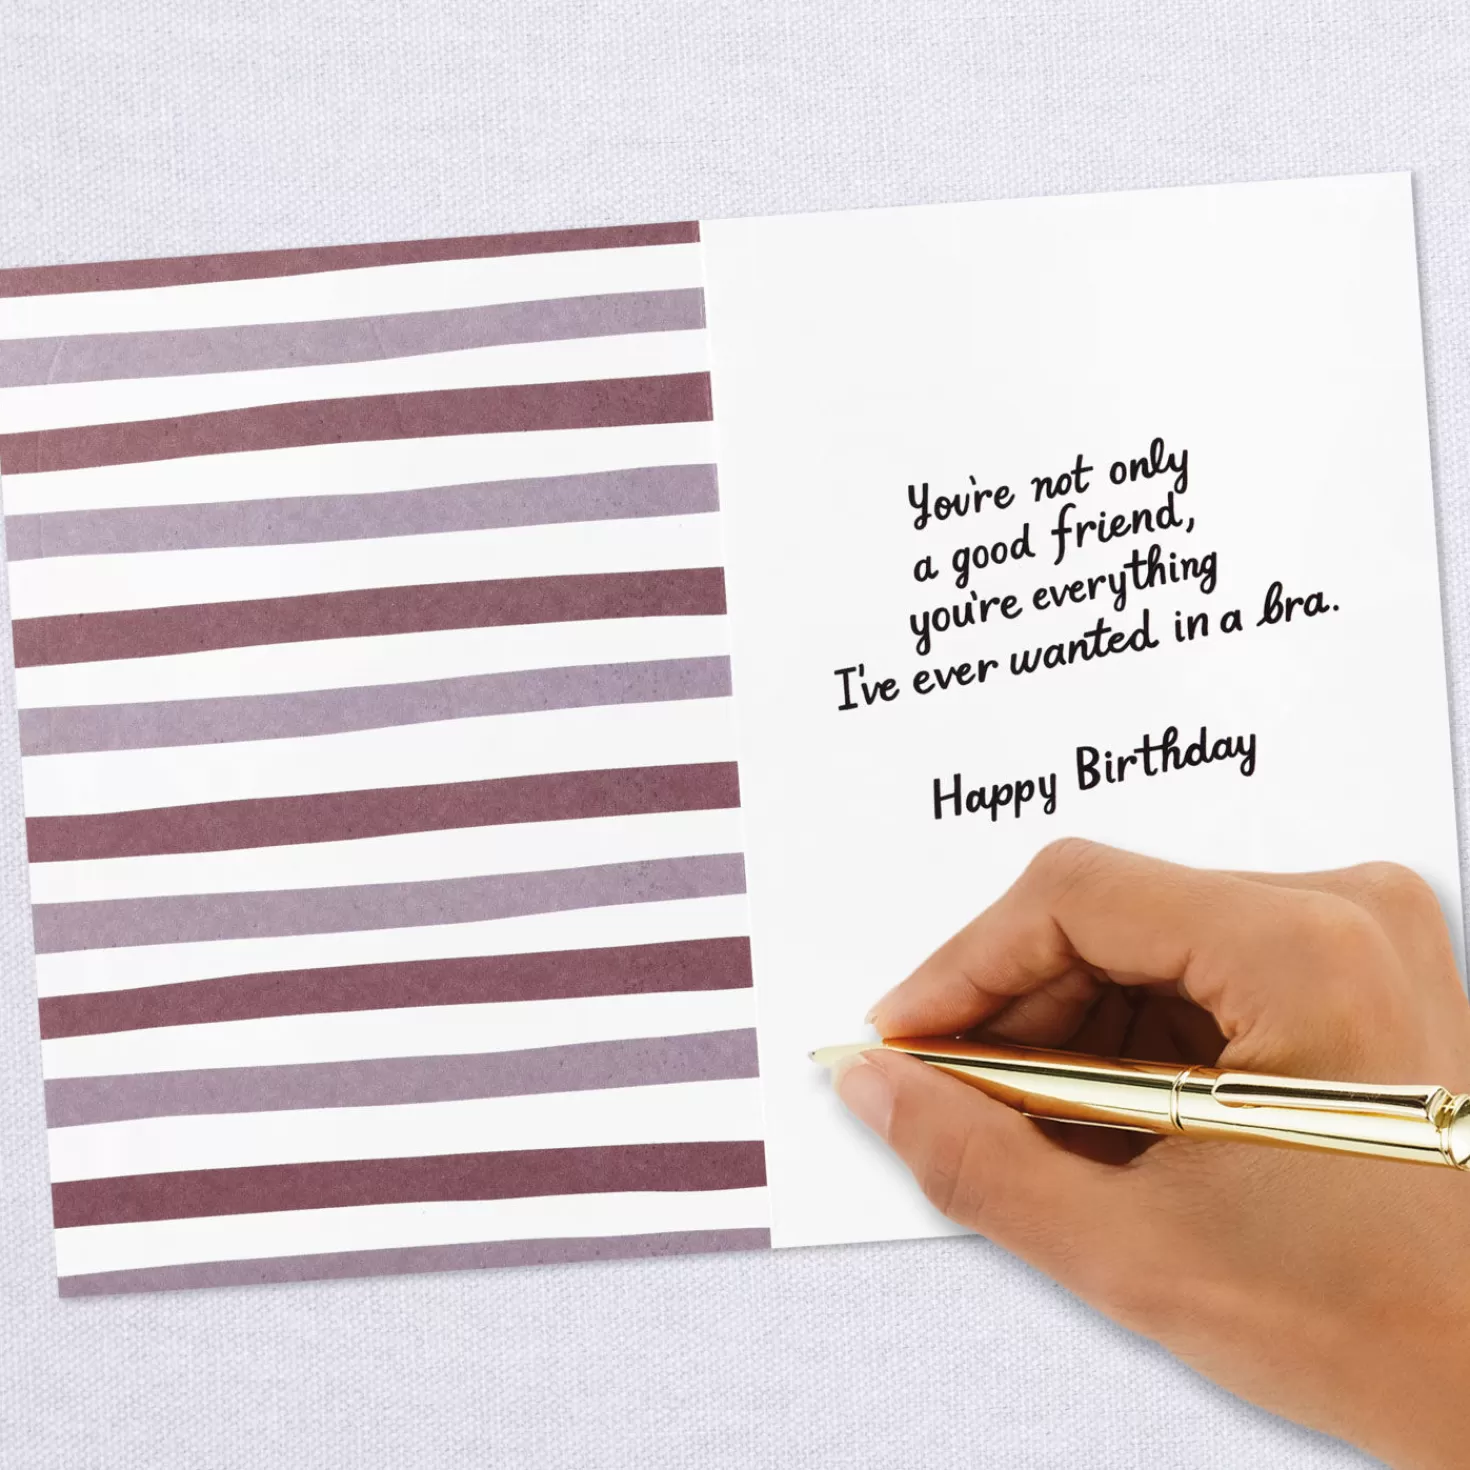 You're not only
a good friend,
you're everything
I've ever wanted in a bra.
Happy Birthday